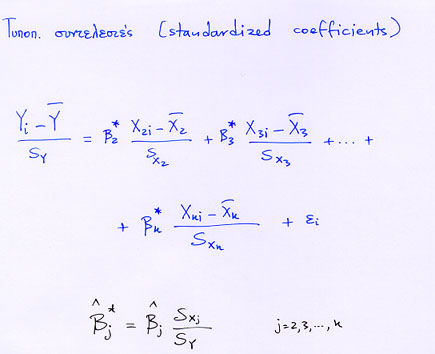 Τυποπ. συντελεστές (standardized coefficients)
(Y_i − Ȳ) / S_Y = β₂* (X_{2i} − X̄₂) / S_{X₂} + β₃* (X_{3i} − X̄₃) / S_{X₃} + ... +
+ β_κ* (X_{κi} − X̄_κ) / S_{X_κ} + ε_i
β̂_j* = β̂_j S_{X_j} / S_Y j=2,3,...,κ